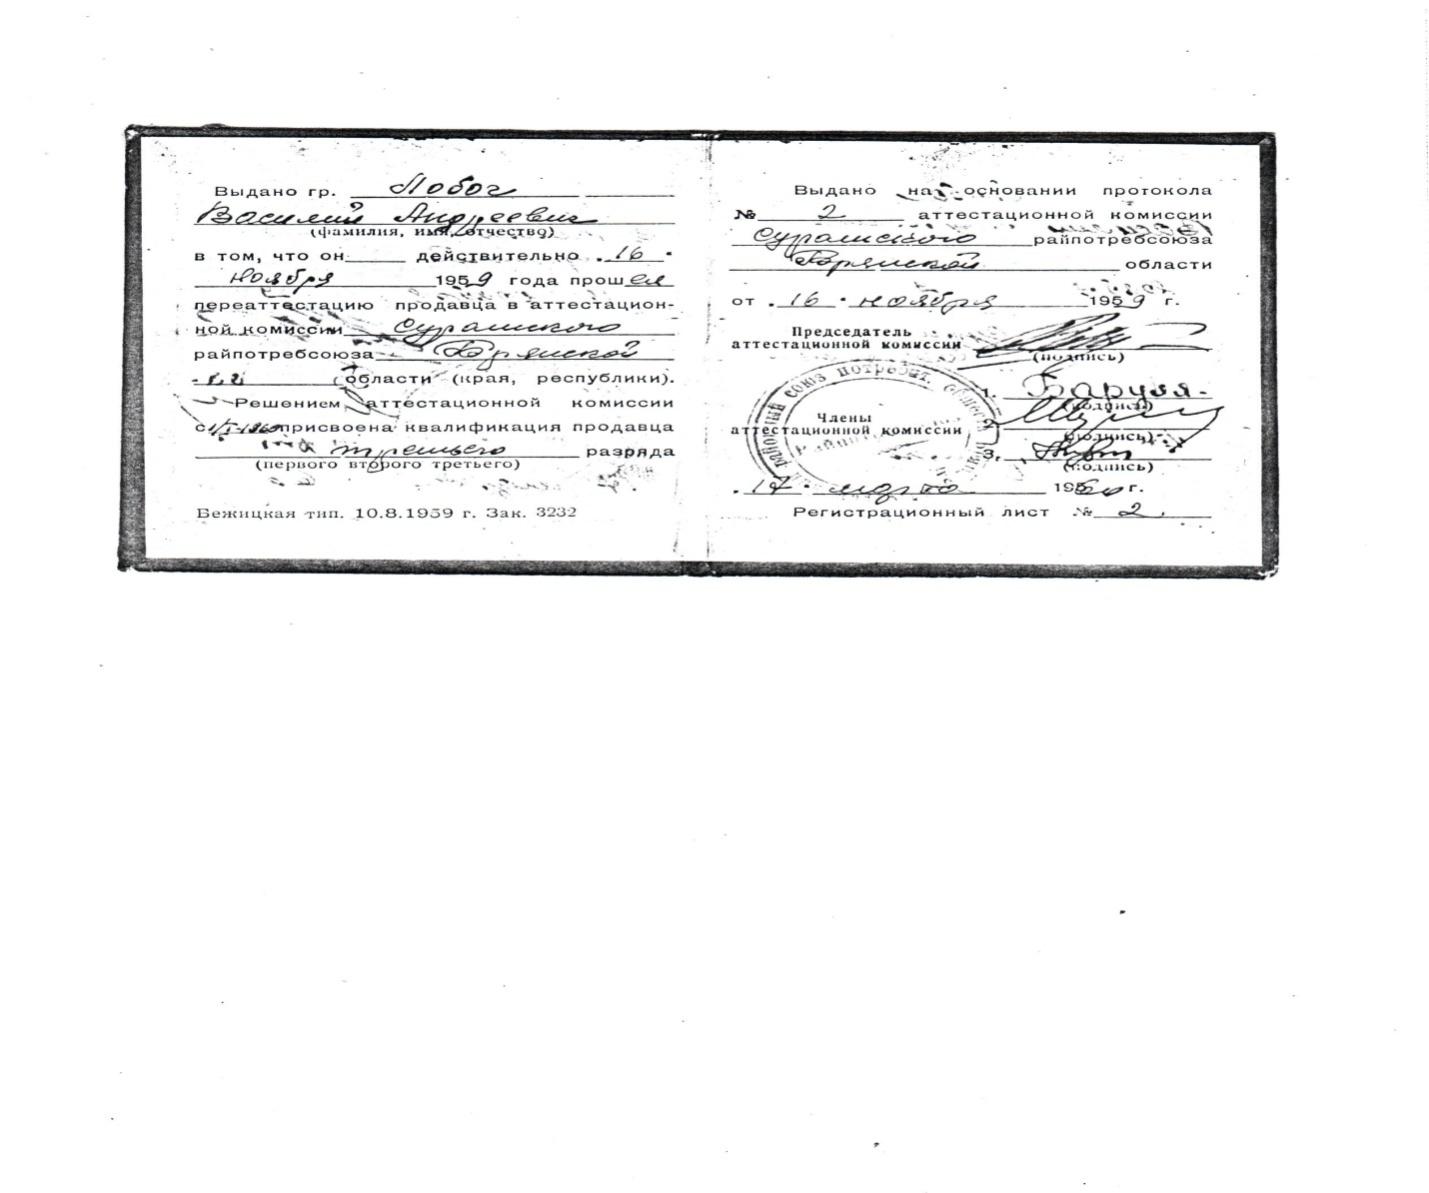 Выдано гр. Лобог
Василий Андреевич
(фамилия, имя, отчество)
в том, что он действительно 16
ноября 1959 года прошел
переаттестацию продавца в аттестацион-
ной комиссии Суражского
райпотребсоюза Брянской
области (края, республики).
Решением аттестационной комиссии
с 1/I-1960 присвоена квалификация продавца
третьего разряда
(первого второго третьего)
Бежицкая тип. 10.8.1959 г. Зак. 3232
Выдано на основании протокола
№ 2 аттестационной комиссии
Суражского райпотребсоюза
Брянской области
от 16 ноября 1959 г.
Председатель
аттестационной комиссии
(подпись)
союз потребит.
Баруля
(подпись)
Члены
аттестационной комиссии
(подпись)
3.
(подпись)
17 марта 1960 г.
Регистрационный лист № 2.